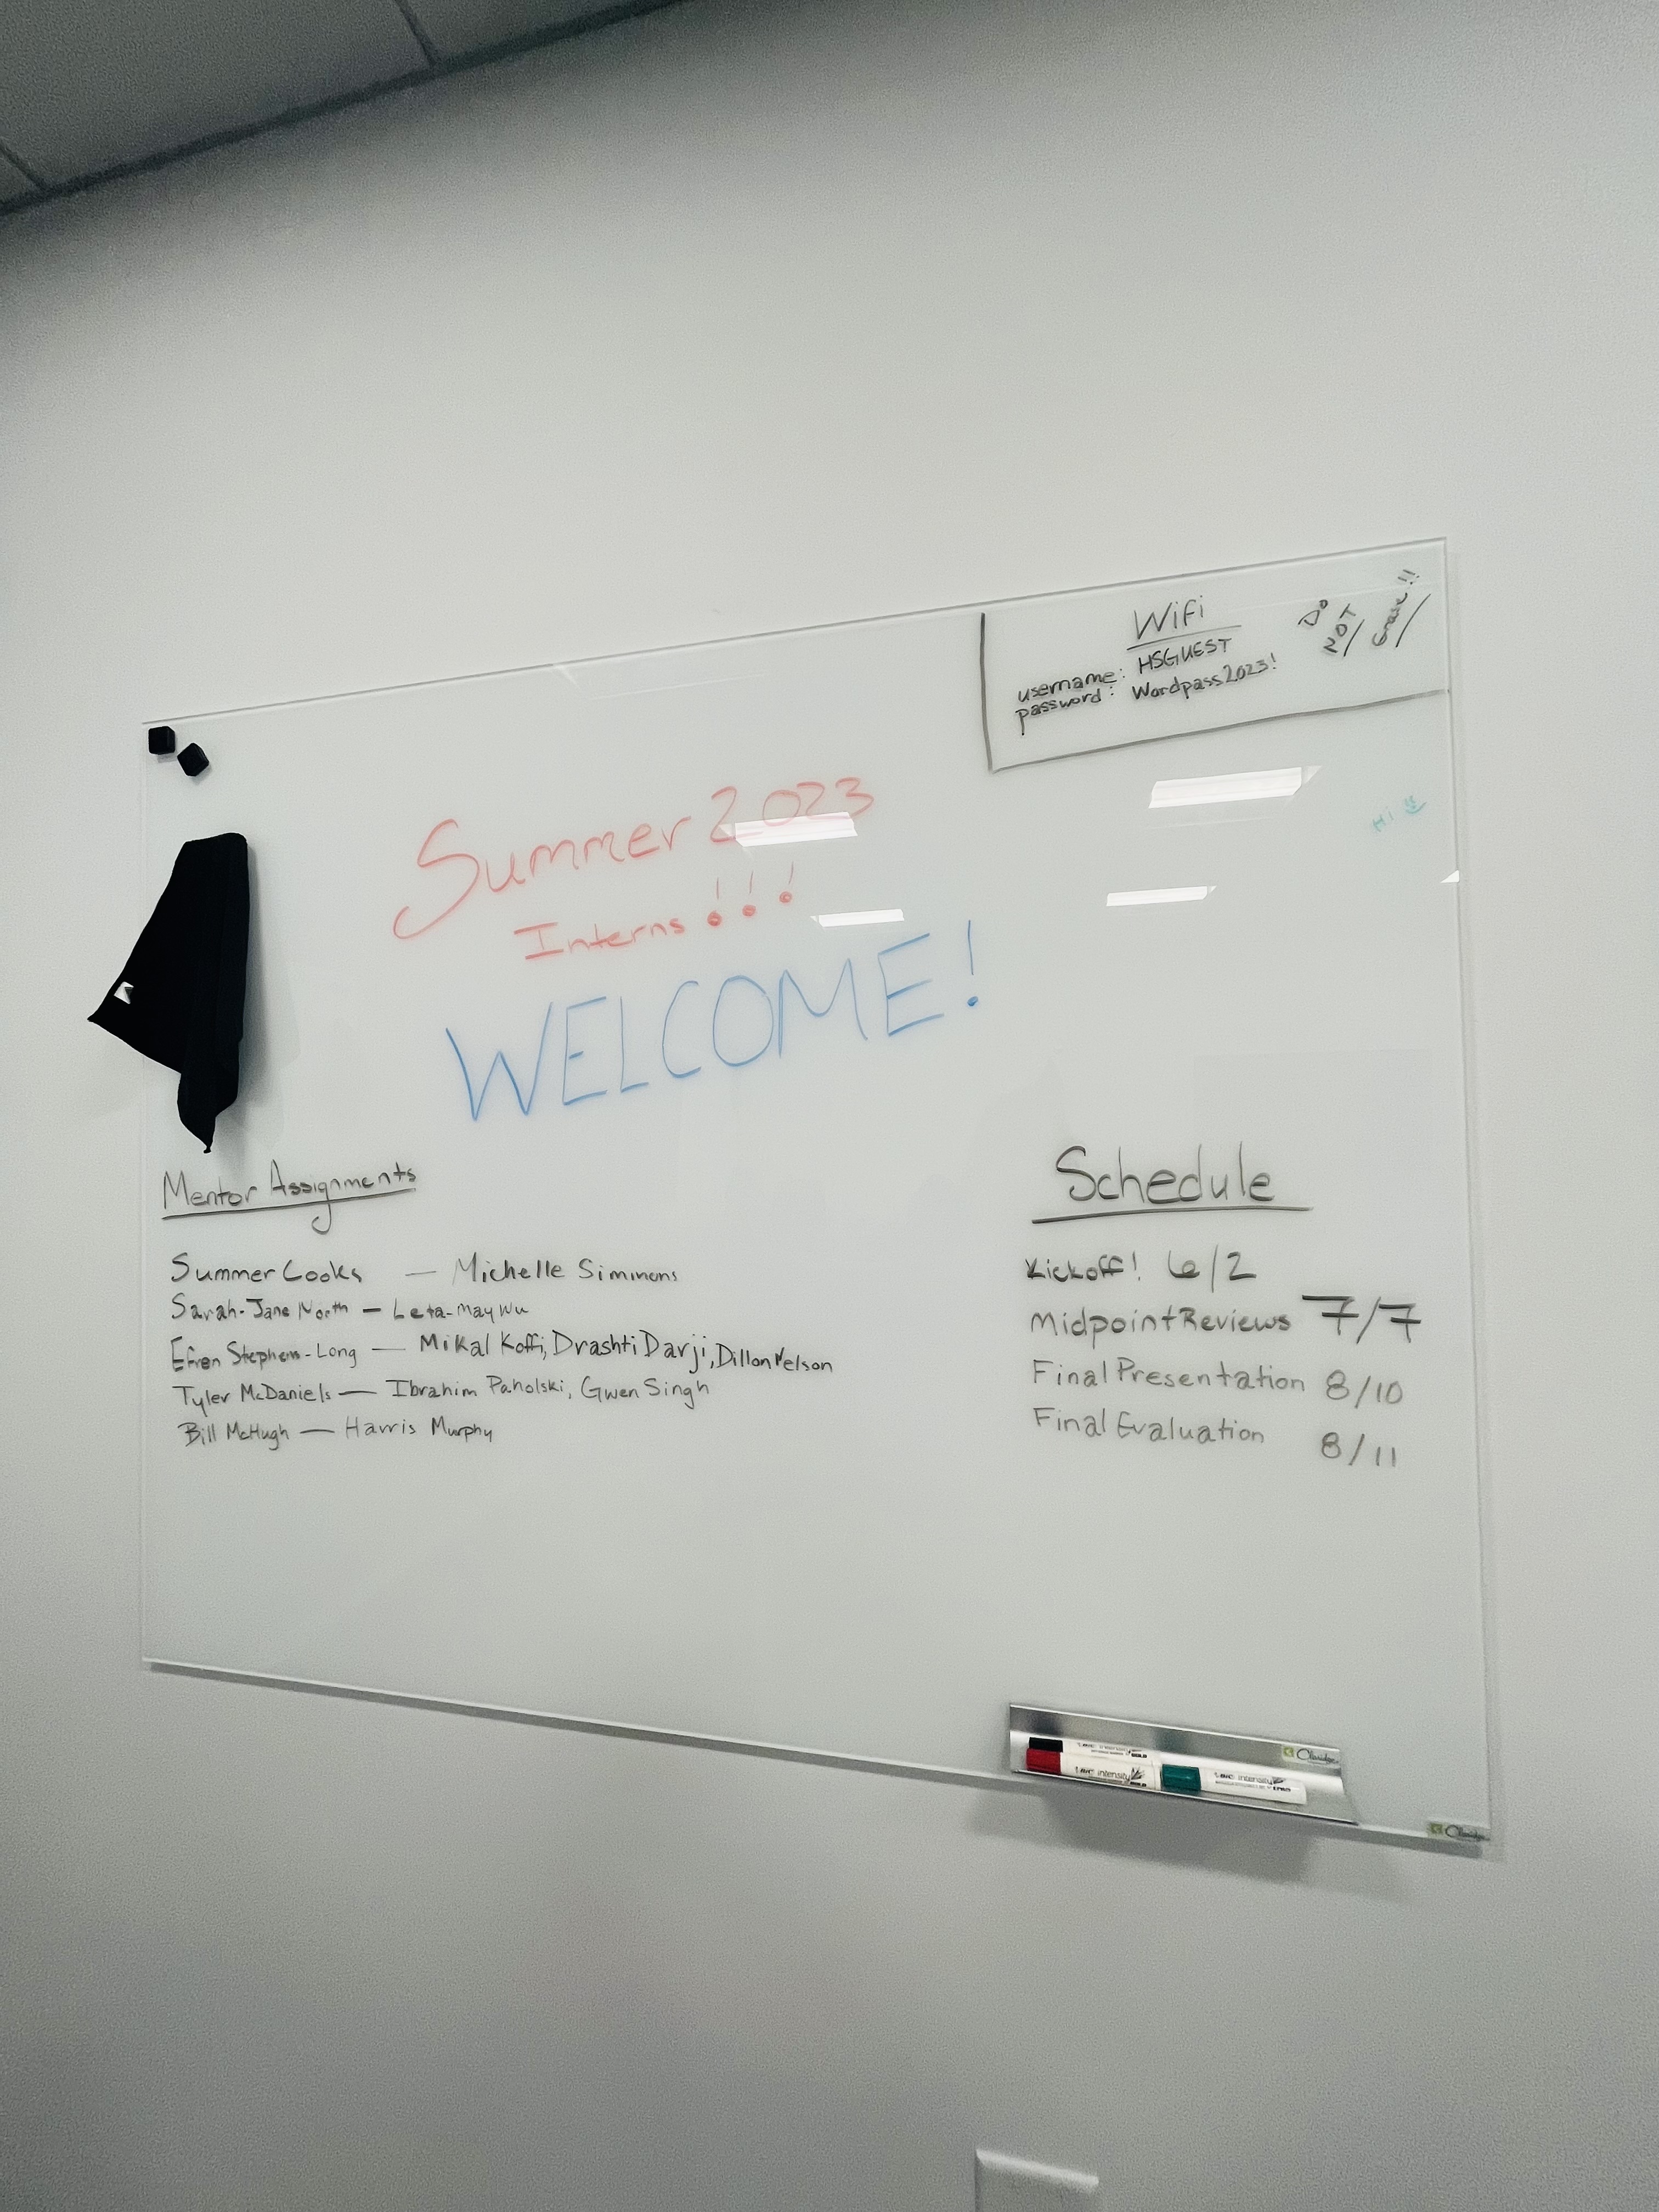 Wifi
username: HSGUEST
password: Wordpass2023!
Do
NOT
Erase!!
Summer 2023
Interns!!!
WELCOME!
Hi
Mentor Assignments
Summer Cooks — Michelle Simmons
Sarah-Jane North — Leta-May Wu
Efren Stephens-Long — Mikal Koffi, Drashti Darji, Dillon Nelson
Tyler McDaniels — Ibrahim Paholski, Gwen Singh
Bill McHugh — Harris Murphy
Schedule
Kickoff! 6/2
Midpoint Reviews 7/7
Final Presentation 8/10
Final Evaluation 8/11
BIC intensity
BIC intensity
Claridge
Claridge